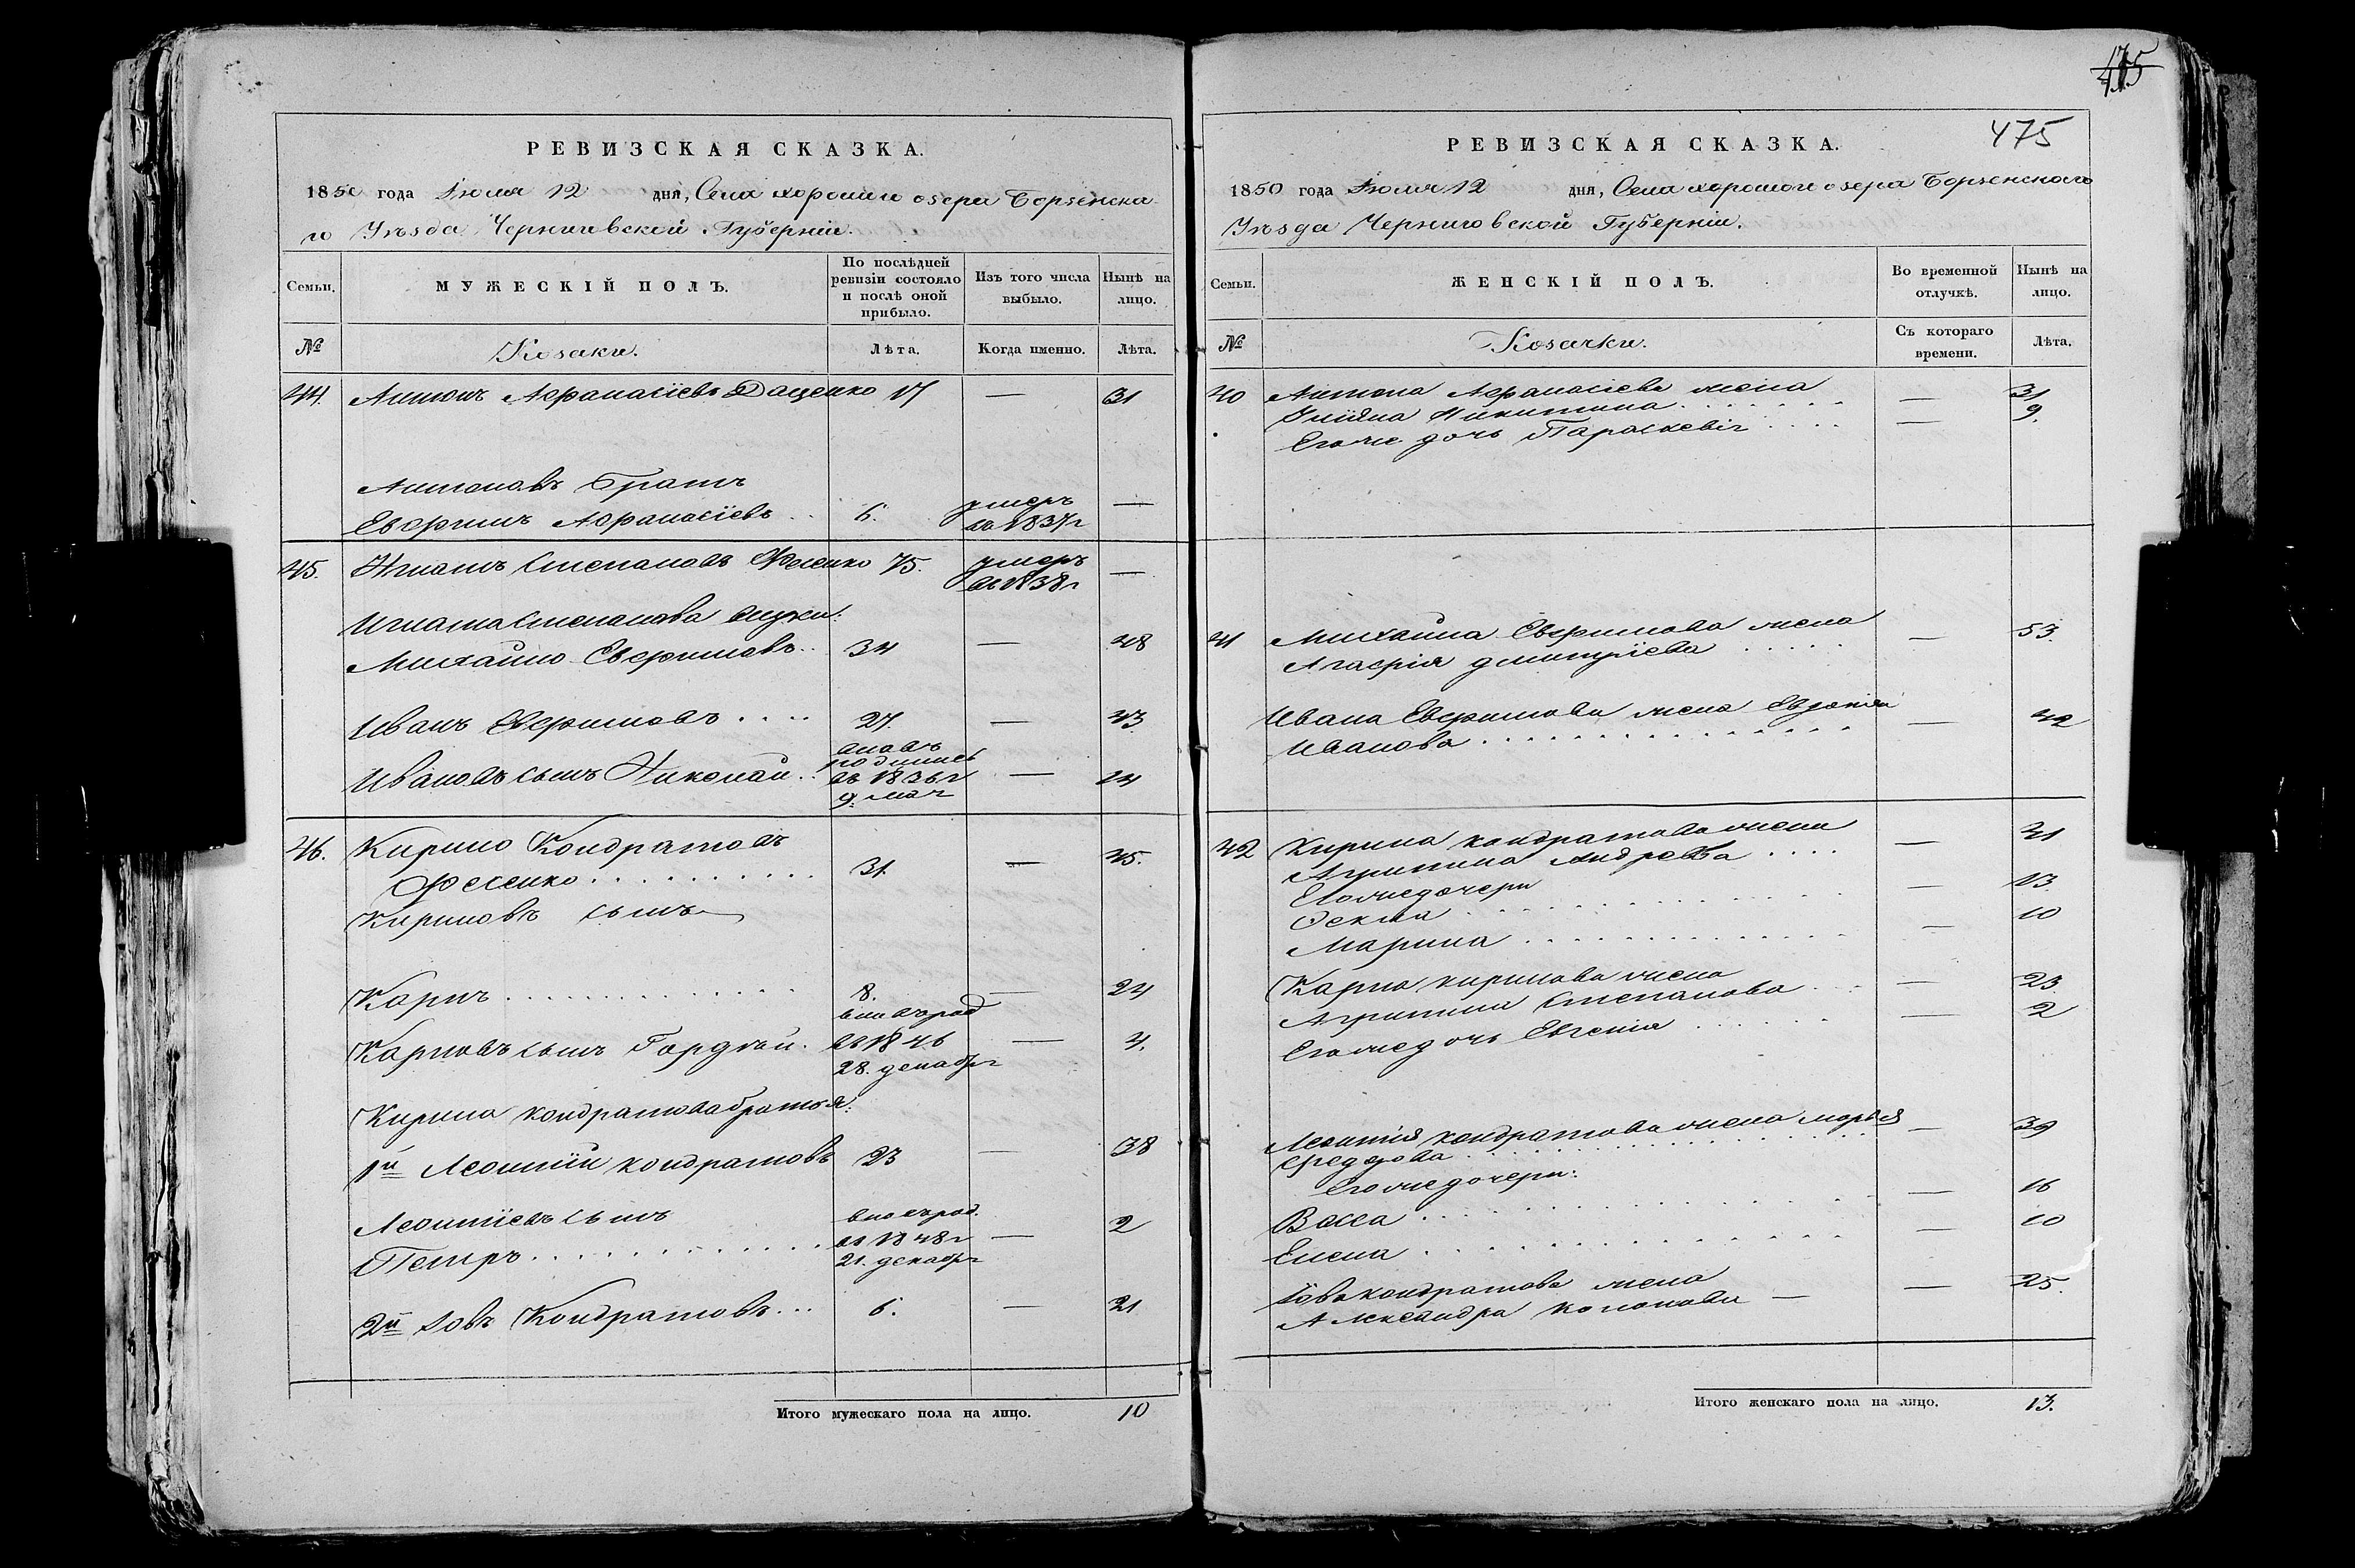 РЕВИЗСКАЯ СКАЗКА.
1850 года Июля 12 дня, Села хорошаго озера Борзенска
го Уѣзда Черниговской Губерніи.
Семьи.
МУЖЕСКІЙ ПОЛЪ.
По послѣдней
ревизіи состояло
и послѣ оной
прибыло.
Изъ того числа
выбыло.
Нынѣ на
лицо.
№
Козаки.
Лѣта.
Когда именно.
Лѣта.
44. Антонъ Афанасіевъ Даценко 17 — 31
Антоновъ братъ
Евфимъ Афанасіевъ . . 6. умеръ въ 1837г —
45. Игнатъ Степановъ Фесенко 75. умеръ въ 1838г —
Игната Степанова внуки:
Михайло Евфимовъ . . 34 — 48
Иванъ Евфимовъ . . . . 27. — 43.
Ивановъ сынъ Николай . . вновь
родился
въ 1836г — 14
9. мая
46. Кирило Кондратовъ
Фесенко . . . . . . . . . . 31. — 45.
Кириловъ сынъ
Карпъ . . . . . . . . . . . . . 8. — 24
вновь род
Карповъ сынъ Гордѣй . въ 1846 — 4.
28. декабр
Кирила Кондратова братья:
1й Леонтій Кондратовъ 23 — 38
Леонтіевъ сынъ вновь род.
Петръ . . . . . . . . . . . . въ 1848г — 2
21. декабр
2й Іовъ Кондратовъ . . . 6. — 21
Итого мужескаго пола на лицо. 10
475
475
РЕВИЗСКАЯ СКАЗКА.
1850 года Июля 12 дня, Села хорошаго озера Борзенскаго
Уѣзда Черниговской Губерніи.
Семьи.
ЖЕНСКІЙ ПОЛЪ.
Во временной
отлучкѣ.
Нынѣ на
лицо.
№
Козачки.
Съ котораго
времени.
Лѣта.
40 Антона Афанасіева жена
Никитина . . . . . . . — 31
Егоже дочь Параскевія . . . . — 9.
41 Михайла Евфимова жена
Агафія Дмитріева . . . . . — 53.
Ивана Евфимова жена Евдокія
Иванова . . . . . . . . . . . . . . — 42
42 Кирила Кондратова жена
Агрипина Андреева . . . . — 41
Егоже дочери
Фекла . . . . . . . . . . . . . . — 13.
Марина . . . . . . . . . . . . . — 10
Карпа Кирилова жена
Агрипина Степанова . . . — 23.
Егоже дочь Евгенія . . . . . . — 2
Леонтія Кондратова жена Марья
Федорова . . . . . . . . . . . . . . — 39
Егоже дочери:
Васса . . . . . . . . . . . . . . . — 16
Елена . . . . . . . . . . . . . . . — 10
Іова Кондратова жена
Александра Кононова — — 25.
Итого женскаго пола на лицо. 13.